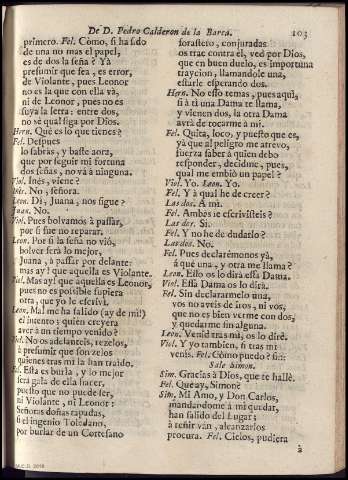 De D. Pedro Calderon de la Barca. 103
primero. Fel. Còmo, si ha sido
de una no mas el papel,
es de dos la seña? Yà
presumir que sea, es error,
de Violante, pues Leonor
no es la que con ella và,
ni de Leonor, pues no es
suya la letra: entre dos,
no sè qual siga por Dios.
Hern. Què es lo que tienes?
Fel. Despues
lo sabràs, y baste aora,
que por seguir mi fortuna
dos señas, no và à ninguna.
Viol. Inès, viene?
Inès. No, señora.
Leon. Di, Juana, nos sigue?
Juan. No.
Viol. Pues bolvamos à passar,
por si fue no reparar.
Leon. Por si la seña no viò,
bolver serà lo mejor,
Juana, à passar por delante:
mas ay! que aquella es Violante.
Viol. Mas ay! que aquella es Leonor,
pues no es possible supiera
otra, que yo le escrivì.
Leon. Mal me ha salido (ay de mi!)
el intento; quien creyera
aver à un tiempo venido?
Viol. No os adelanteis, rezelos,
à presumir que son zelos
quienes tras mi la han traìdo.
Fel. Esta es burla, y lo mejor
serà gala de ella hacer,
puesto que no puede ser,
ni Violante, ni Leonor:
Señoras doñas tapadas,
si el ingenio Toledano,
por burlar de un Cortesano
forastero, conjuradas
os trae contra èl, ved por Dios,
que en buen duelo, es importuna
traycion, llamandole una,
estarle esperando dos.
Hern. No esso temas, pues aqui,
si à ti una Dama te llama,
y vienen dos, la otra Dama
avrà de tocarme à mi.
Fel. Quita, loco, y puesto que es,
yà que al peligro me atrevo,
fuerza saber à quien debo
responder, decidme, pues,
qual me embiò un papel?
Viol. Yo. Leon. Yo.
Fel. Y à qual he de creer?
Las dos. A mi.
Fel. Ambas le escrivisteis?
Las dos. Si.
Fel. Y no he de dudarlo?
Las dos. No.
Fel. Pues declarèmonos yà,
à què una, y otra me llama?
Leon. Esso os lo dirà essa Dama.
Viol. Essa Dama os lo dirà.
Fel. Sin declararmelo una,
vos no aveis de iros, ni vos,
que no es bien verme con dos,
y quedarme sin alguna.
Leon. Venid tras mi, os lo dirè.
Viol. Y yo tambien, si tras mi
venis. Fel. Còmo puedo?
Sale Simon.
Sim. Gracias à Dios, que te hallè.
Fel. Què ay, Simon?
Sim. Mi Amo, y Don Carlos,
mandandome à mi quedar,
han salido del Lugar;
à reñir vàn, alcanzarlos
procura. Fel. Cielos, pudiera